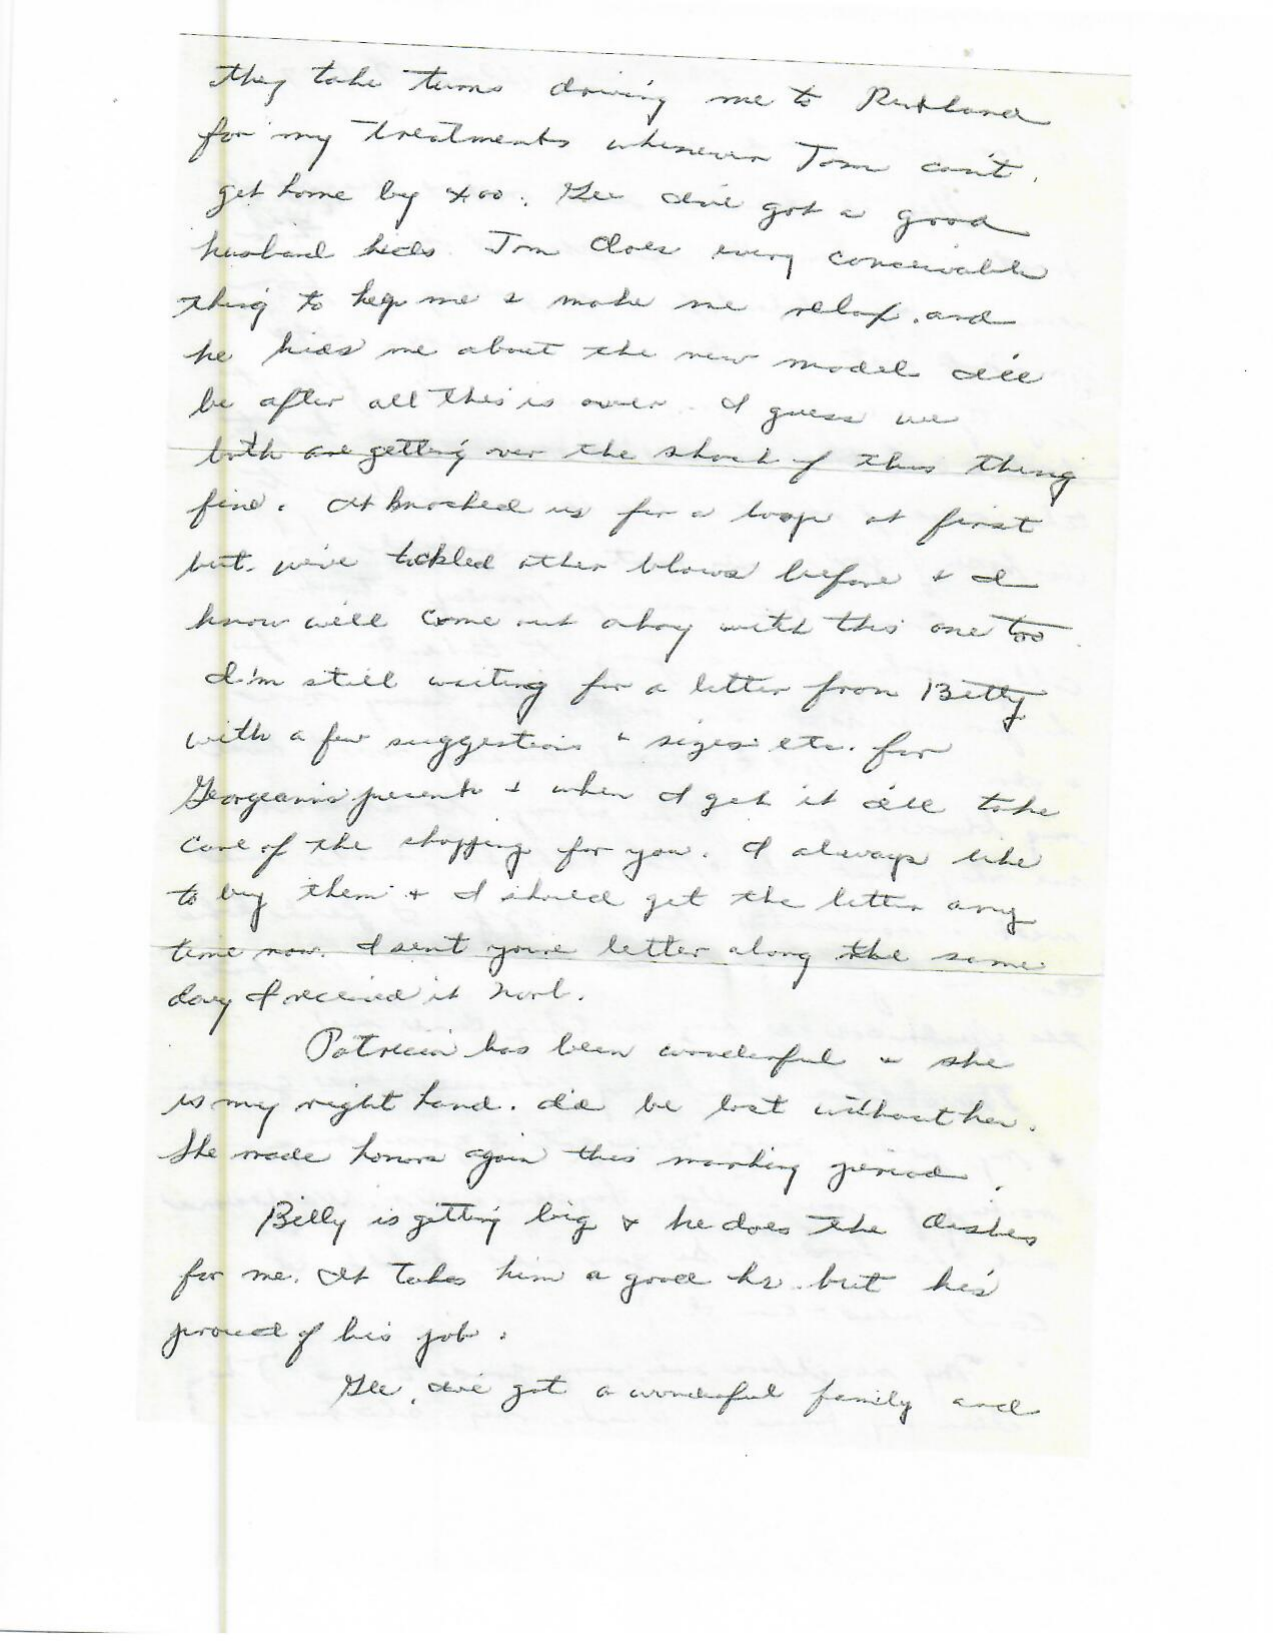 they take turns driving me to Rutland
for my treatments whenever Tom can't
get home by 4:00. Gee I've got a good
husband kids. Tom does every conceivable
thing to help me & make me relax. and
he kids me about the new model I'll
be after all this is over. I guess we
both are getting over the shock of this thing
fine. It knocked us for a loop at first
but we've tackled other blows before & I
know we'll come out okay with this one too
I'm still waiting for a letter from Betty
with a few suggestions & sizes etc. for
Georgeann's presents & when I get it I'll take
care of the shopping for you. I always like
to buy them & I should get the letter any
time now. I sent your letter along the same
day I received it Norb.
Patricia has been wonderful & she
is my right hand. I'd be lost without her.
She made honors again this marking period.
Billy is getting big & he does the dishes
for me. It takes him a good hr. but he's
proud of his job.
Gee, I've got a wonderful family and